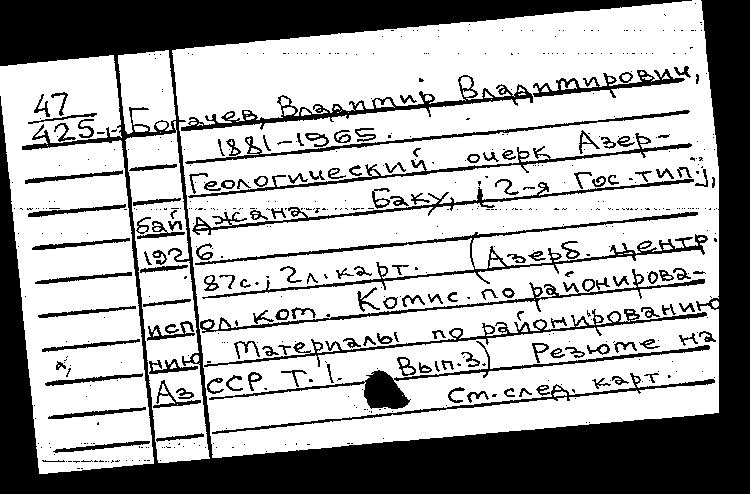 47
425-1-3 Богачев, Владимир Владимирович,
1881-1965.
Геологический очерк Азер-
байджана. Баку, [2-я Гос. тип.],
1926.
87с.; 2л.карт. (Азерб. центр.
испол. ком. Комис. по районирова-
нию. Материалы по районированию
Аз ССР. Т. 1. Вып.3.) Резюме на
См. след. карт.